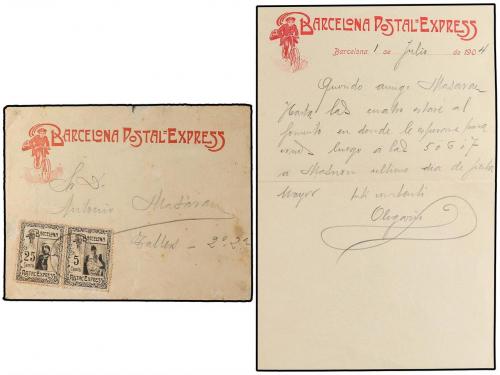 BARCELONA POSTAL-EXPRESS
Sr. D.
Antonio Masaran
Talles - 2º 2ª
25
Cents
BARCELONA
POSTAL EXPRESS
5
Cents
BARCELONA
POSTAL EXPRESS
BARCELONA POSTAL-EXPRESS
Barcelona 1 de Julio de 1904
Querido amigo Masaran
Hasta las cuatro estaré al
fomento en donde le esperaré para
luego á las 5 ó 6 ó 7
á ultimo dia de
Mayor